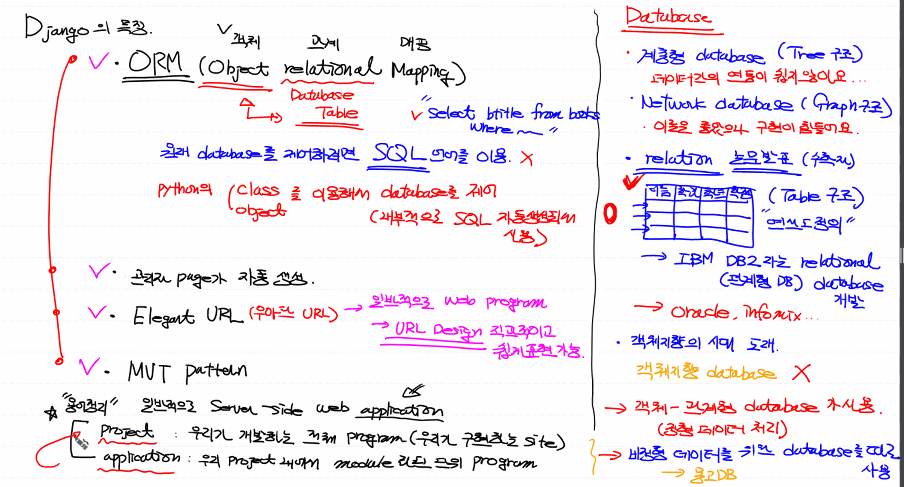 Django의 특징.
객체 관계 매핑
ORM (Object relational Mapping)
Database
Table
"Select btitle from books
where ~~ "
원래 database를 제어하려면 SQL 언어를 이용. X
Python의 class 를 이용해서 database를 제어
object
(내부적으로 SQL 자동생성되서
사용)
관리자 page가 자동 생성.
Elegant URL (우아한 URL) → 일반적으로 web program
→ URL Design 직관적이고
쉽게 표현가능.
MVT pattern
"용어정리" 일반적으로 Server-side web application
project : 우리가 개발하는 전체 program (우리가 구현하는 site)
application : 우리 project 내에서 module 단위의 program
Database
· 계층형 database (Tree 구조)
데이터간의 연동이 쉽지않아요...
· Network database (Graph구조)
· 이론은 좋았으나 구현이 힘들어요.
· relation 논문발표 (수학자)
이름
(Table 구조)
→ IBM DB2 라는 relational
(관계형 DB) database
개발
→ oracle, infomix...
· 객체지향의 시대 도래.
객체지향 database X
→ 객체-관계형 database 가 사용.
(정형 데이터 처리)
→ 비정형 데이터를 database를 따로
사용
→ 몽고DB